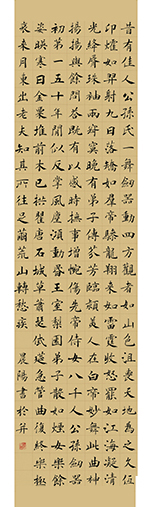 昔有佳人公孫氏一舞劍器動四方觀者如山色沮喪天地為之久低
昂㸌如羿射九日落矯如羣帝驂龍翔来如雷霆收震怒罷如江海凝清
光絳脣珠袖兩寂寞晚有弟子傳芬芳臨潁美人在白帝妙舞此曲神
揚揚與余問答既有以感時撫事增惋傷先帝侍女八千人公孫劍器
初第一五十年間似反掌風塵澒洞昏王室梨園弟子散如煙女樂餘
姿映寒日金粟堆前木已拱瞿唐石城草蕭瑟玳筵急管曲復終樂極
哀来月東出老夫不知其所往足繭荒山轉愁疾 晨陽書於并